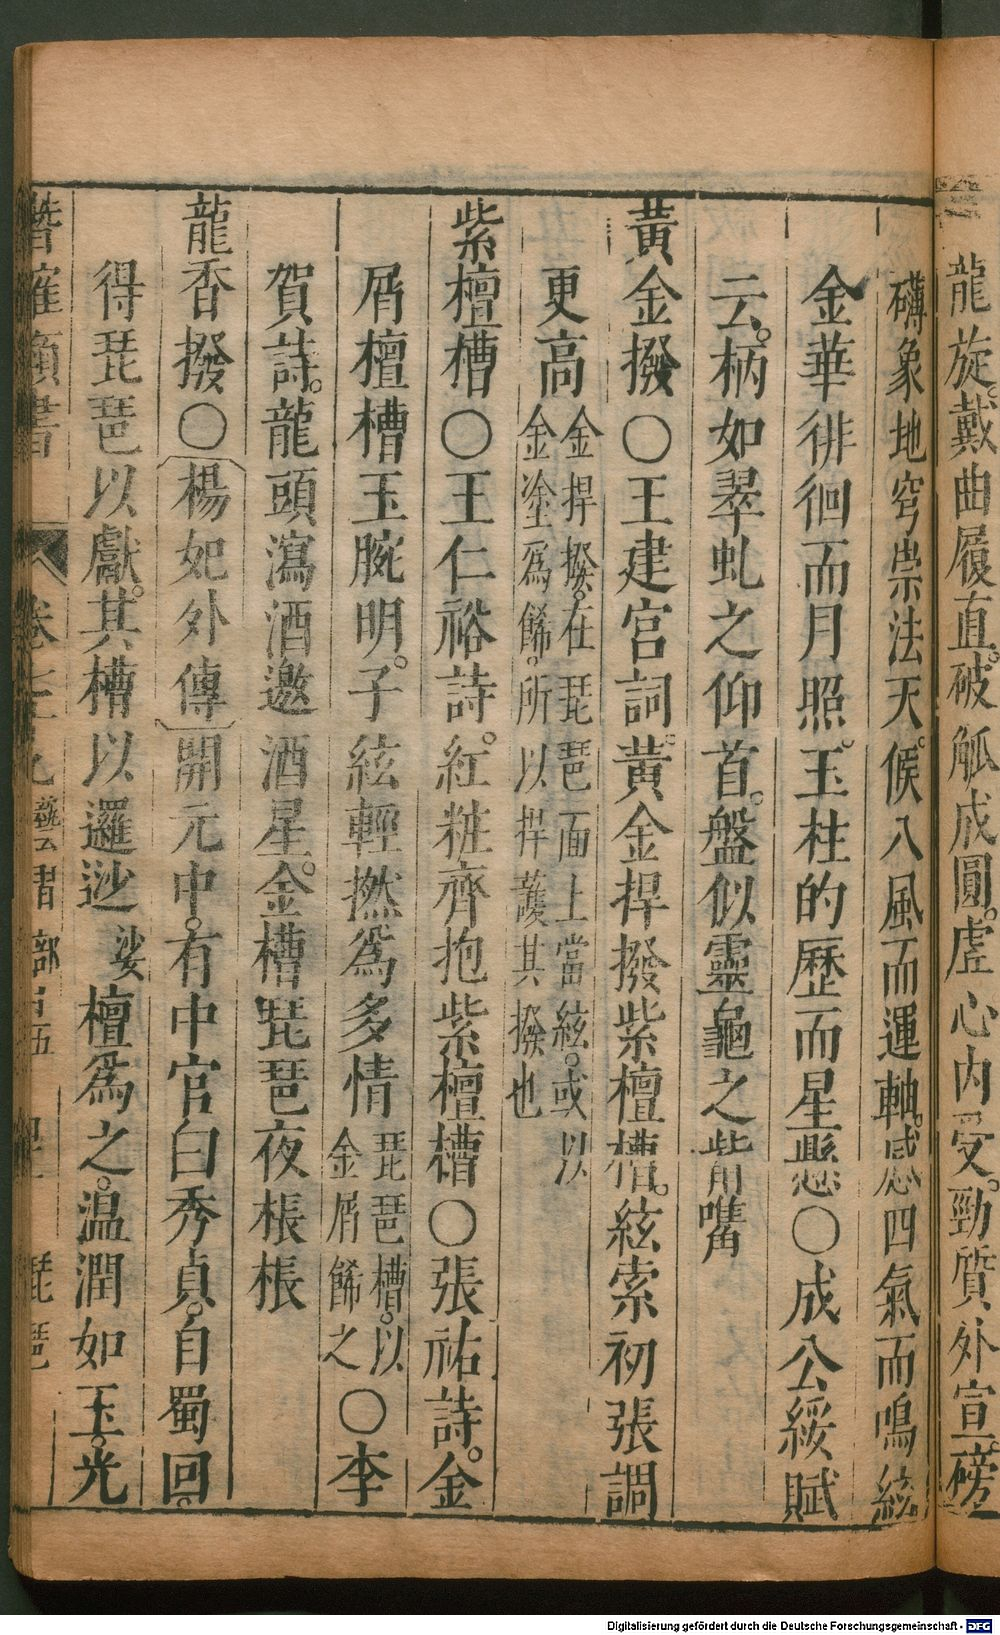 龍旋戴曲履直。破觚成圓。虛心内受。勁質外宣。磅
礴象地穹崇法天。候八風而運軸。感四氣而鳴絃
金華徘徊而月照。玉柱的歷而星懸〇成公綏賦
云。柄如翠虬之仰首。盤似靈龜之觜觿
黃金撥〇王建宮詞。黃金捍撥紫檀槽。絃索初張調
更高
金捍撥。在琵琶面上當絃。或以
金塗爲餙。所以捍護其撥也
紫檀槽〇王仁裕詩。紅粧齊抱紫檀槽〇張祐詩。金
屑檀槽玉腕明。子絃輕撚爲多情
琵琶槽。以
金屑餙之
〇李
賀詩。龍頭瀉酒邀酒星。金槽琵琶夜棖棖
龍香撥〇楊妃外傳 開元中。有中官白秀貞。自蜀回。
得琵琶以獻。其槽以邏逤
娑
檀爲之。温潤如玉。光
卷 琵琶
Digitalisierung gefördert durch die Deutsche Forschungsgemeinschaft - DFG